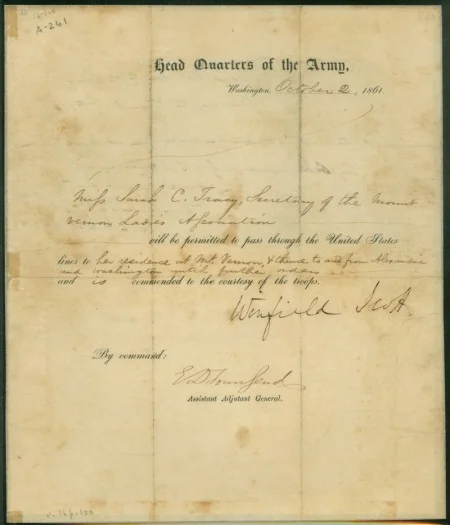 A-261
Head Quarters of the Army,
Washington, October 2, 1861.
Miss Sarah C. Tracy, Secretary of the Mount
Vernon Ladies Association
will be permitted to pass through the United States
lines to her residence at Mt. Vernon, & thence to and from Alexandria
and Washington until further orders
and is commended to the courtesy of the troops.
Winfield Scott.
By command:
E D Townsend
Assistant Adjutant General.